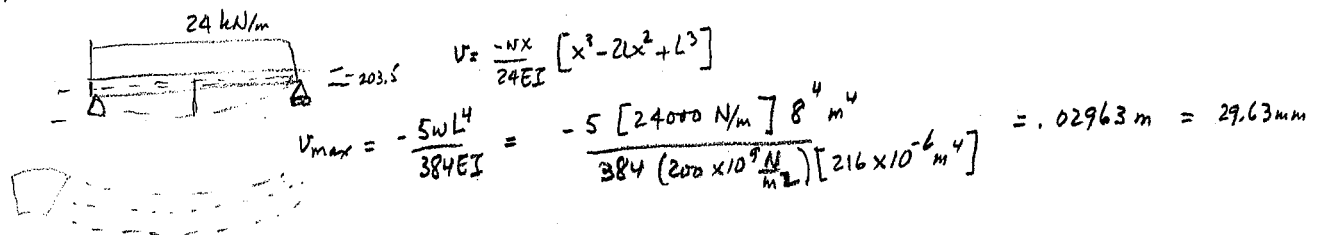 24 kN/m
= 203.5
v = -wx/24EI [x³ - 2Lx² + L³]
v max = -5wL⁴/384EI = -5 [24000 N/m] 8⁴ m⁴ / 384 (200 x10⁹ N/m²) [216 x10⁻⁶ m⁴] = .02963 m = 29.63 mm